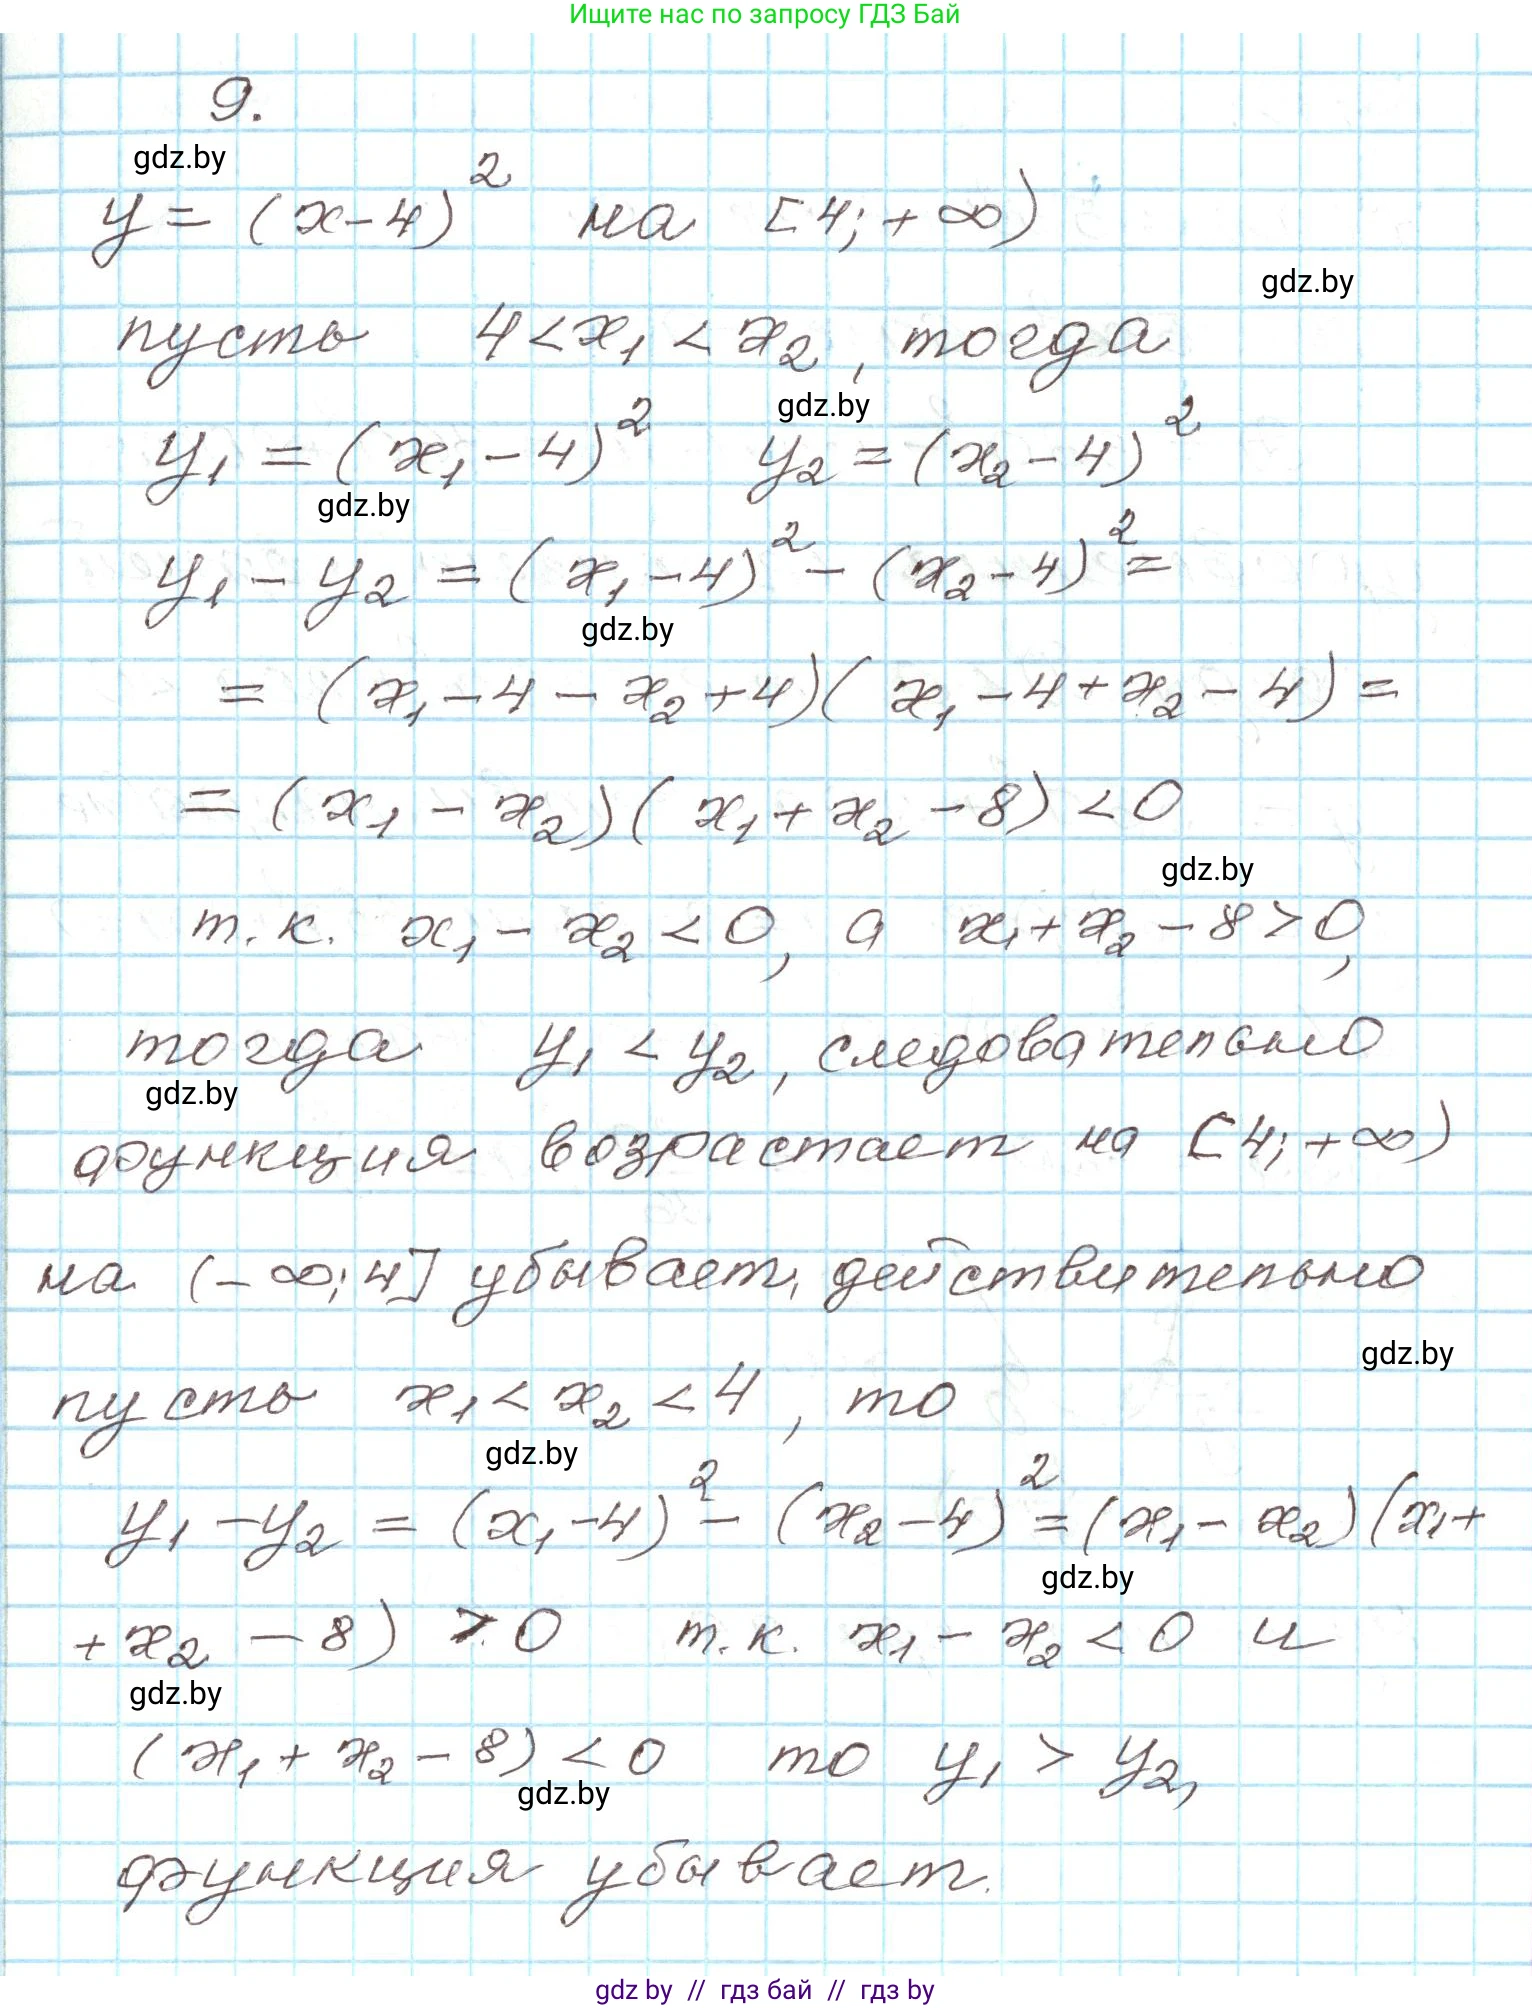 Ищите нас по запросу ГДЗ Бай
9.
gdz.by
y = (x-4)² на [4; +∞)
gdz.by
пусть 4 < x₁ < x₂, тогда
gdz.by
y₁ = (x₁-4)² y₂ = (x₂-4)²
gdz.by
y₁ - y₂ = (x₁-4)² - (x₂-4)² =
gdz.by
= (x₁-4-x₂+4)(x₁-4+x₂-4) =
= (x₁-x₂)(x₁+x₂-8) < 0
gdz.by
т.к. x₁-x₂ < 0, а x₁+x₂-8 > 0,
тогда y₁ < y₂, следовательно
gdz.by
функция возрастает на [4; +∞)
на (-∞; 4] убывает, действительно
gdz.by
пусть x₁ < x₂ < 4, то
gdz.by
y₁ - y₂ = (x₁-4)² - (x₂-4)² = (x₁-x₂)(x₁+
gdz.by
+x₂ - 8) > 0 т.к. x₁-x₂ < 0 и
gdz.by
(x₁+x₂-8) < 0 то y₁ > y₂,
gdz.by
функция убывает.
gdz by // гдз бай // гдз by